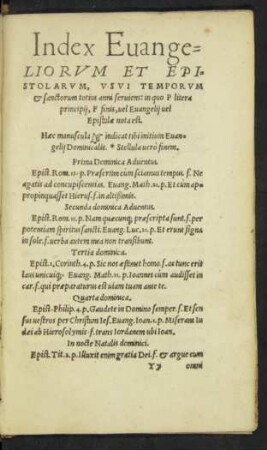 Index Euange=
LIORVM ET EPI-
STOLARVM, VSVI TEMPORVM
& sanctorum totius anni seruiens: in quo P litera
principij, F finis, uel Euangelij uel
Epistolæ nota est.
Hæc manuscula ☞ indicat tibi initium Euan-
gelij Dominicalis. * Stellula uerò finem.
Prima Dominica Aduentus.
Epist. Rom. 13. p. Præsertim cum sciamus tempus. f. Ne
agatis ad concupiscentias. Euang. Math. 21. p. Et cum ap-
propinquasset Hieros. f. in altissimis.
Secunda dominica Aduentus.
Epist. Rom. 15. p. Nam quæcunq; præscripta sunt. f. per
potentiam spiritus sancti. Euang. Luc. 21. p. Et erunt signa
in sole. f. uerba autem mea non transibunt.
Tertia dominica.
Epist. 1. Corinth. 4. p. Sic nos æstimet homo. f. ac tunc erit
laus unicuiq;. Euang. Math. 11. p. Ioannes cum audisset in
car. f. qui præparaturus est uiam tuam ante te.
Quarta dominica.
Epist. Philip. 4. p. Gaudete in Domino semper. f. Et sen
sus uestros per Christum Ies. Euang. Ioan. 1. p. Miserunt Iu
dæi ab Hierosolymis. f. trans Iordanem ubi Ioan.
In nocte Natalis dominici.
Epist. Tit. 2. p. Illuxit enim gratia Dei. f. & argue cum
Yy omni